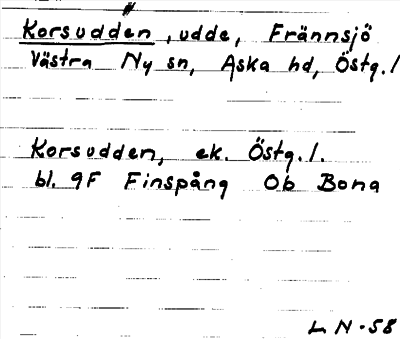 Korsudden, udde, Frännsjö
Västra Ny sn, Aska hd, Östg./
Korsudden, ek. Östg./.
bl. 9F Finspång Ob Bona
L N-58